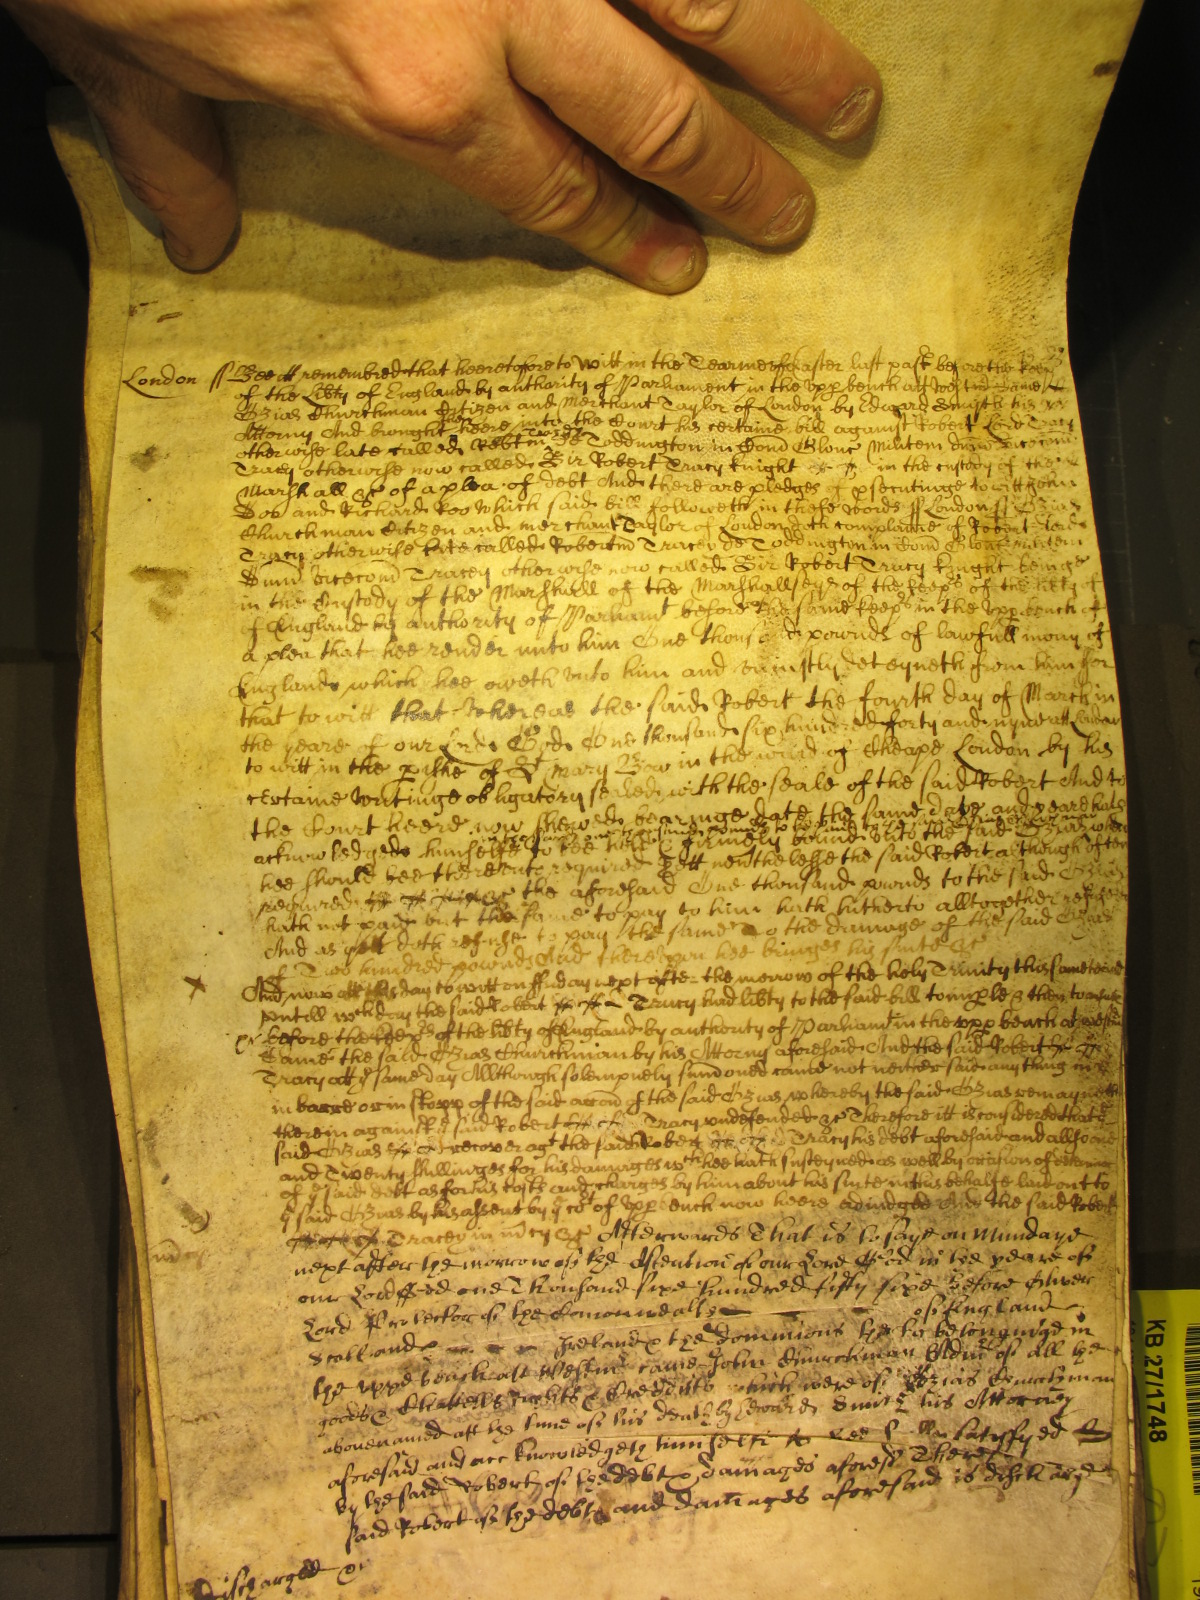 London ss Bee itt remembred that heeretofore to witt in the Tearme of Easter last past before the Keeps
of the Libty of England by authority of Parliament in the upp bench att Westm Came
Ozias Churchman Citizen and Merchant Taylor of London by Edward Smyth his
Attorny And brought heere into the Court his certaine bill against Robert Lord Tracy
otherwise late called Robtm Tracy de Toddington in Com Glouc Militem Dnum Vicecom
Tracy otherwise now called Sir Robert Tracy knight in the custody of the
Marshall &c of a plea of debt And there are pledges of psecutinge to witt John
Doo and Richard Roo Which said bill followeth in these words ss London ss Ozias
Churchman Citizen and Merchant Taylor of London doth complaine of Robert Lord
Tracy otherwise late called Robertm Tracey de Toddington in Com Glouc militem
Dnum vicecom Tracey otherwise now called Sir Robert Tracy knight beinge
in the Custody of the Marshall of the Marshallseys of the keeps of the libty of
of England by authority of Parliamt before the same keeps in the upp bench of
a plea that hee render unto him One thousand pownds of lawfull mony of
England which hee oweth unto him and uniustly deteyneth from him for
that to witt that Whereas the said Robert the fourth day of March in
the yeare of our Lord God One thousand six hundred forty and nyne att London
to witt in the pishe of St Mary Bow in the ward of Cheape London by his
certaine writinge obligatory sealed with the seale of the said Robert And to
the Court heere now shewed bearinge date the same daye and yeare hath
acknowledged himselfe to bee held & firmely bound unto the said Ozias
hee should bee thereunto required Yett nevthelesse the said Robert although often
required the aforesaid One thousand pownds to the said Ozias
hath not paid but the same to pay to him hath hitherto alltogether refused
And as yett doth refuse to pay the same To the damage of the said Ozias
of Two hundred pownds And thereupon hee bringes his suite &c
And now att this day to witt on ffriday next after the morrow of the holy Trinity this same terme
untill wch day the said Robert Tracy had libty to the said bill to imple & then to
before the keeps of the libty of England by authority of Parliamt in the upp bench at westm
Came the said Ozias Churchman by his Attorny aforesaid And the said Robert
Tracy att ye same day Allthough solempnely sumoned came not neither said any thing
in barre or in stopp of the said accon of the said Ozias whereby the said Ozias remayneth
therein against ye said Robert Tracy undefended &c Therefore itt is considered that ye
said Ozias recover agt the said Robert Tracy his debt aforesaid and allso one
and Twenty shillinges for his damages wch hee hath susteyned as well by occasion of deteininge
of ye said debt as for his costs and charges by him about his suite in this behalfe laid out to
ye said Ozias by his assent by ye Cot of upp bench now heere adiudged And the said Robert
Tracey in mcy &c Afterwards That is to saye on Mundaye
next after the morrow of the Asention of our Lord God in the yeare of
our Lord God one Thousand sixe hundred fifty sixe before Oliver
Lord Protector of the Comonwealth of England
Scotland Ireland & the dominions thereto belonginge in
the uppe bench att Westmr came John Churchman Admr of all the
goods & Chattells rights & Creditts which were of Ozias Churchman
abovenamed att the time of his death by Edward Smith his Attorney
aforesaid and acknowledgeth himselfe to bee satisfyed
by the said Robert of the debt & damages aforesd Therefore
said Robert of the debt and damages aforesaid is discharged
discharged
KB 27/1748